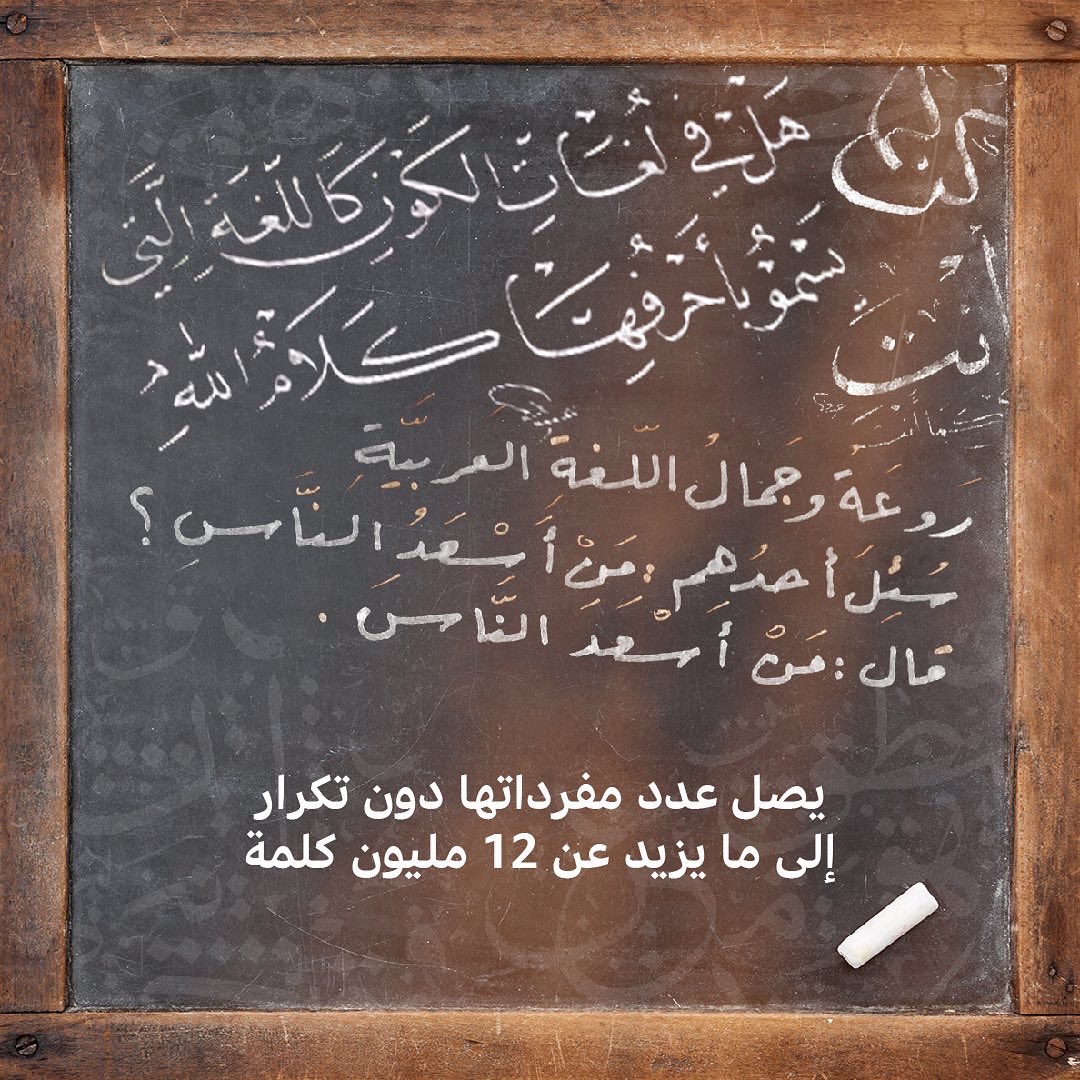 هَلْ في لُغَاتِ الكَوْنِ كَاللُّغَةِ الَّتِي
تَسْمُو بأَحْرُفِهَا كَلَامُ اللهِ
كن
أنتَ
رَوعَةُ وجَمالُ اللّغةِ العربيَّةِ
سُئِلَ أحدُهم : مَنْ أَسْعَدُ النَّاسِ ؟
قال : مَنْ أَسْعدَ النَّاسَ .
يصل عدد مفرداتها دون تكرار
إلى ما يزيد عن 12 مليون كلمة